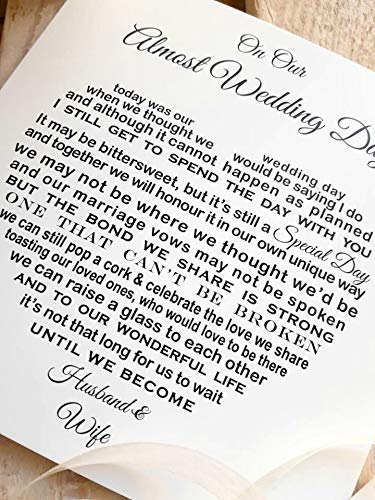 On Our
Almost Wedding Day
today was our wedding day
when we thought we would be saying I do
and although it cannot happen as planned
I STILL GET TO SPEND THE DAY WITH YOU
It may be bittersweet, but it's still a Special Day
and together we will honour it in our own unique way
we may not be where we thought we'd be
and our marriage vows may not be spoken
BUT THE BOND WE SHARE IS STRONG
ONE THAT CAN'T BE BROKEN
we can still pop a cork & celebrate the love we share
toasting our loved ones, who would love to be there
we can raise a glass to each other
AND TO OUR WONDERFUL LIFE
it's not that long for us to wait
UNTIL WE BECOME
Husband &
Wife